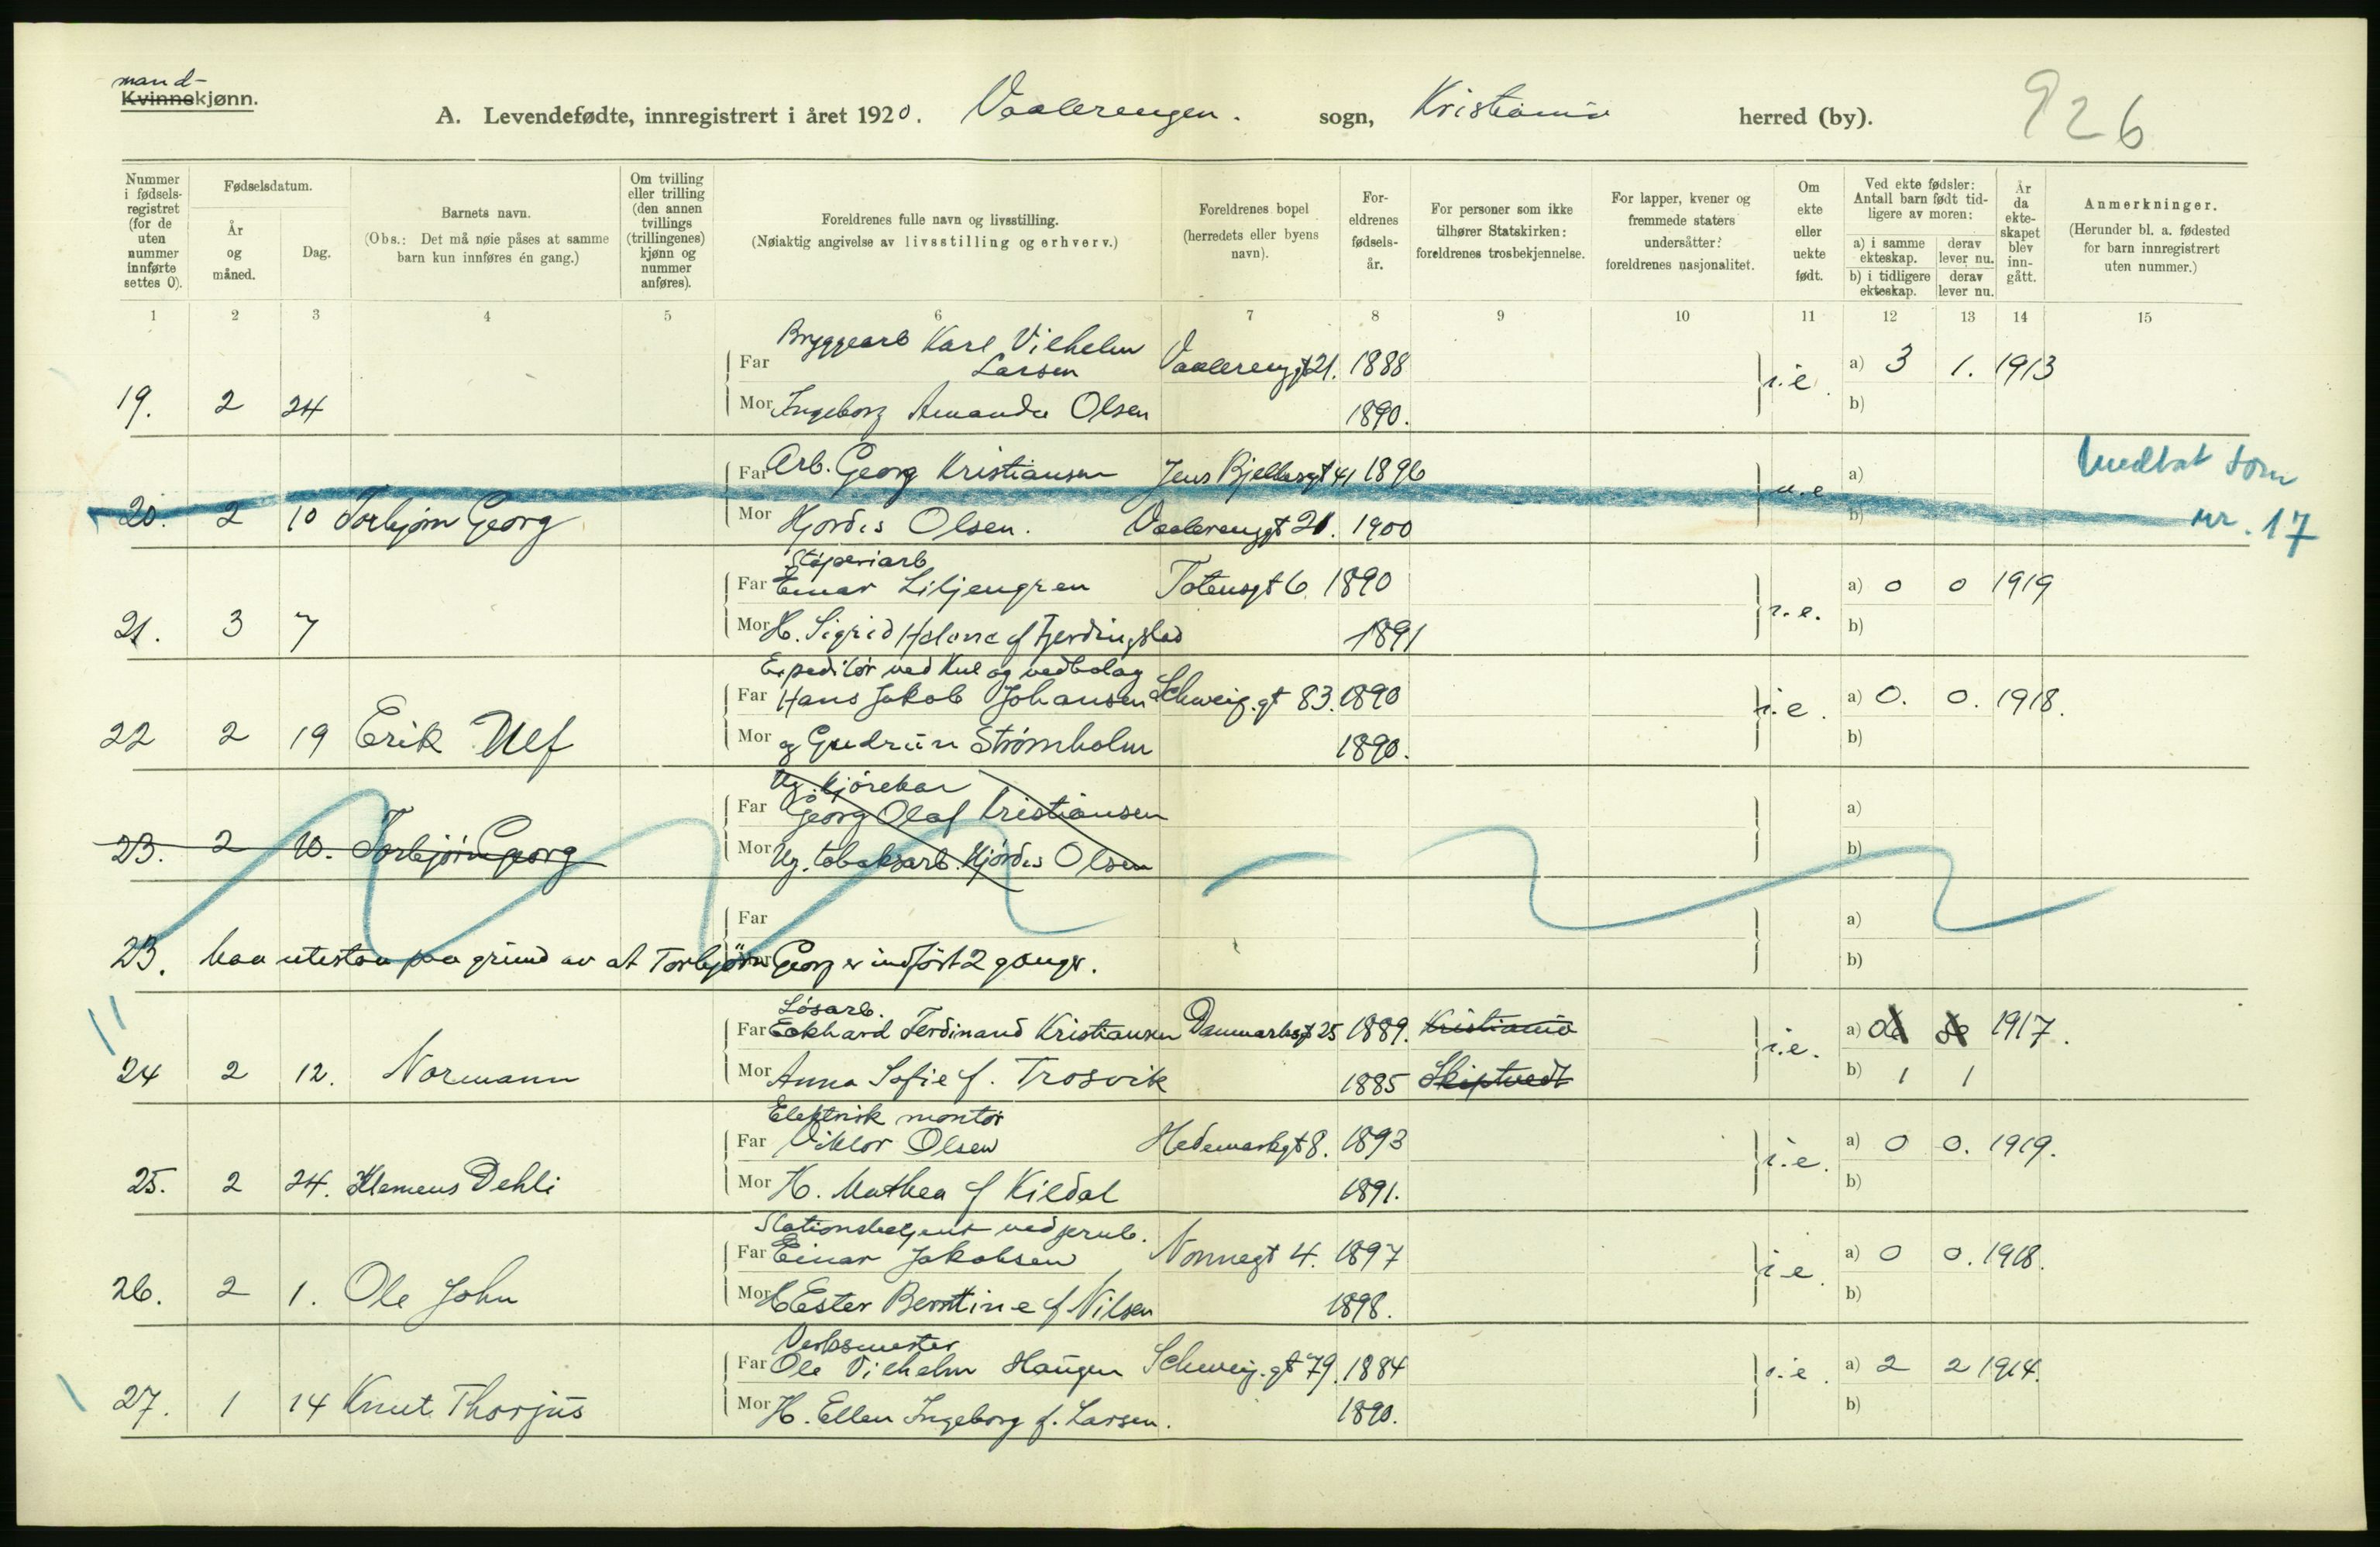 mand-
Kvinnekjønn.
A. Levendefødte, innregistrert i året 1920. Vaalerengen. sogn, Kristiania herred (by). 926
Nummer i fødsels-registret (for de uten nummer innførte settes 0).
Fødselsdatum.
År og måned.
Dag.
Barnets navn.
(Obs.: Det må nøie påses at samme barn kun innføres én gang.)
Om tvilling eller trilling (den annen tvillings (trillingenes) kjønn og nummer anføres).
Foreldrenes fulle navn og livsstilling.
(Nøiaktig angivelse av livsstilling og erhverv.)
Foreldrenes bopel (herredets eller byens navn).
For-eldrenes fødsels-år.
For personer som ikke tilhører Statskirken: foreldrenes trosbekjennelse.
For lapper, kvener og fremmede staters undersåtter: foreldrenes nasjonalitet.
Om ekte eller uekte født.
Ved ekte fødsler: Antall barn født tid-ligere av moren:
a) i samme ekteskap. derav lever nu.
b) i tidligere ekteskap. derav lever nu.
År da ekte-skapet blev inn-gått.
Anmerkninger.
(Herunder bl. a. fødested for barn innregistrert uten nummer.)
1 2 3 4 5 6 7 8 9 10 11 12 13 14 15
Bryggearb Karl Vilhelm
Far Larsen Vaalerenggt 21. 1888 i.e. a) 3 1. 1913
19. 2 24 Mor Ingeborg Amanda Olsen 1890. b)
Far Arb. Georg Kristiansen Jens Bjelkesgt 41 1896 u.e a) Medtat som
20. 2 10 Torbjørn Georg Mor Hjordis Olsen. Vaalerenggt 21. 1900 b) nr. 17
Støperiarb
Far Einar Liljengren Totensgt 6 1890 i.e. a) 0 0 1919
21. 3 7 Mor H. Sigrid Helene f Fjerdingstad 1891 b)
Expeditør ved Kul og vedbolag
Far Hans Jakob Johansen Schweig.gt 83. 1890 i.e. a) 0. 0. 1918.
22 2 19 Erik Ulf Mor og Gudrun Strømholm 1890. b)
Ug. kjørekar
Far Georg Olaf Kristiansen a)
23. 2 10. Torbjørn Georg Mor Ug. tobaksarb. Hjørdis Olsen b)
Far a)
23. Maa utestaa paa grund av at Torbjørn Georg er indført 2 ganger. b)
Løsarb.
Far Eckhard Ferdinand Kristiansen Danmarksgt 25 1889. Kristiania i.e. a) 1917.
24 2 12. Normann Mor Anna Sofie f. Trosvik 1885 Skiptvedt b) 1 1
Elektrisk montør
Far Viktor Olsen Hedemarkgt 8. 1893 i.e. a) 0 0. 1919.
25. 2 24. Klemens Dehli Mor H. Mathea f Kildal 1891. b)
Stationsbetjent ved jernb.
Far Einar Jakobsen Nonnegt 4. 1897 i.e. a) 0 0. 1918.
26. 2 1. Ole John Mor H Ester Berntine f Nilsen 1898. b)
Verksmester
Far Ole Vilhelm Haugen Schweig.gt 79. 1884 i.e. a) 2 2 1914.
27. 1 14 Knut Thorjus Mor H. Ellen Ingeborg f. Larsen. 1890. b)